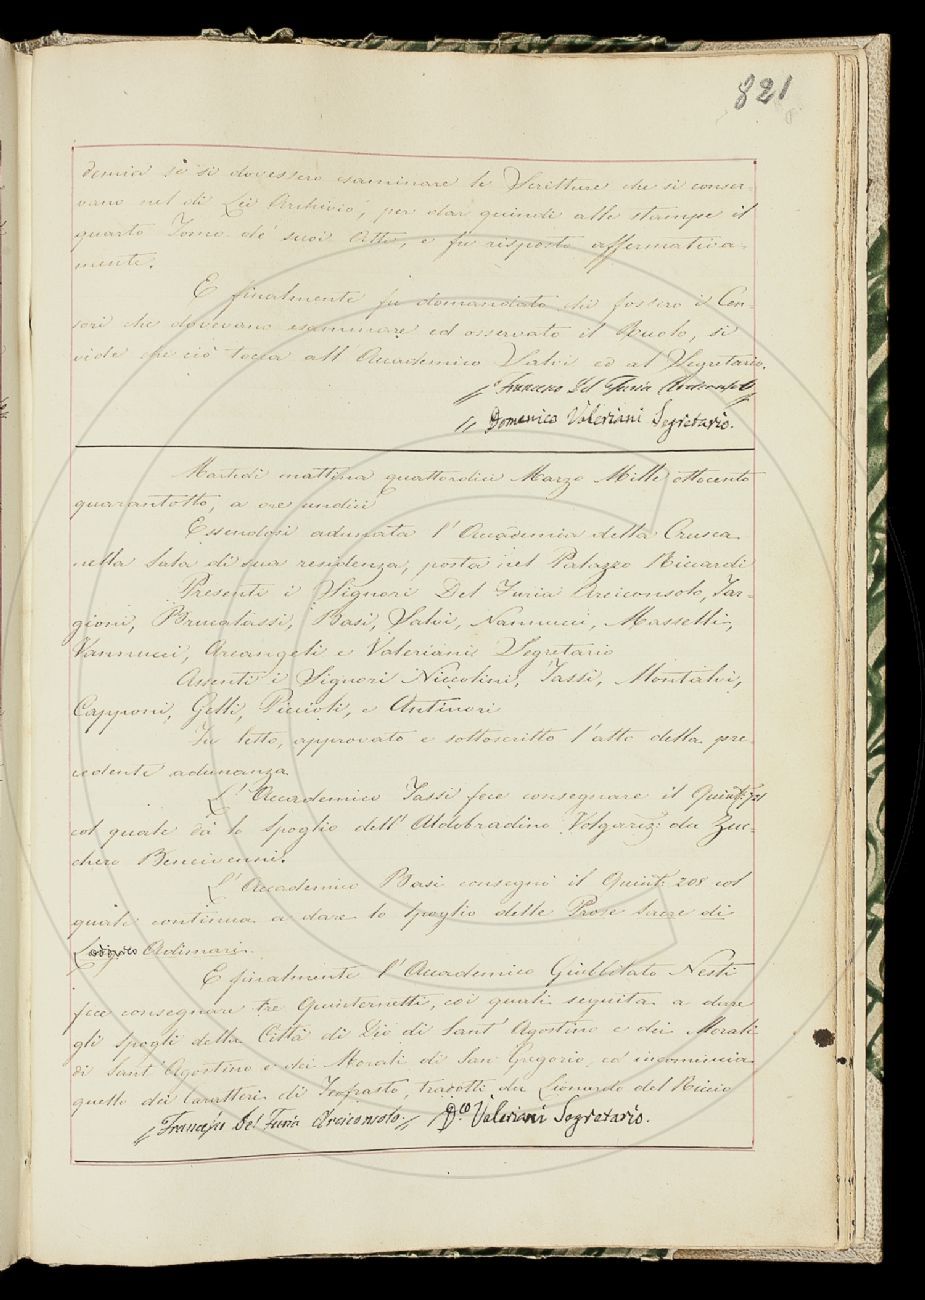 821
demia se si dovessero esaminare le Scritture che si conser-
vano nel di Lei Archivio, per dar quindi alle stampe il
quarto Tomo de' suoi Atti, e fu risposto affermativa-
mente.
E finalmente fu domandato chi fossero i Cen-
sori che dovevano esaminare ed osservato il Ruolo, si
vide che ciò tocca all' Accademico Salvi ed al Segretario.
// Francesco Del Furia Arciconsolo //
// Domenico Valeriani Segretario.
Martedì mattina quattordici Marzo Mille ottocento
quarantotto, a ore undici
Essendosi adunata l'Accademia della Crusca
nella Sala di sua residenza, posta nel Palazzo Riccardi
Presenti i Signori Del Furia Arciconsolo, Tar-
gioni, Brucalassi, Basi, Salvi, Nannucci, Masselli,
Vannucci, Arcangeli e Valeriani Segretario
Assenti i Signori Niccolini, Tassi, Montalvi,
Capponi, Gelli, Piccioli, e Antinori
Fu letto, approvato e sottoscritto l'atto della pre-
cedente adunanza
L'Accademico Tassi fece consegnare il Quint:
col quale dà lo Spoglio dell' Aldobradino Volgariz: da Zuc-
chero Bencivenni.
L'Accademico Basi consegnò il Quint: 208 col
quale continua a dare lo spoglio delle Prose Sacre di
Lodovico Adimari.
E finalmente l'Accademico Giubbilato Nesti
fece consegnare tre Quinternetti, coi quali seguita a dare
gli spogli della Città di Dio di Sant' Agostino e dei Morali
di Sant' Agostino e dei Morali di San Gregorio, ed incomincia
quello dei Caratteri di Teofrasto, tradotti da Lionardo del Riccio
// Francesco Del Furia Arciconsolo. // // D.co Valeriani Segretario.